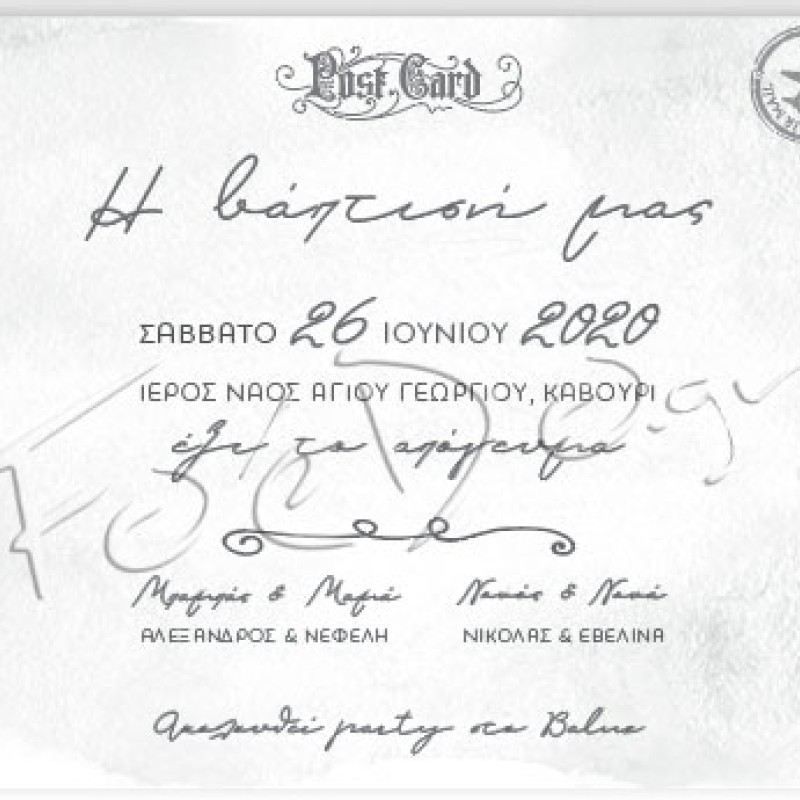 Post Card
AIR MAIL
Η βάπτισή μας
ΣΑΒΒΑΤΟ 26 ΙΟΥΝΙΟΥ 2020
ΙΕΡΟΣ ΝΑΟΣ ΑΓΙΟΥ ΓΕΩΡΓΙΟΥ, ΚΑΒΟΥΡΙ
έξι το απόγευμα
Μπαμπάς & Μαμά
Νονός & Νονά
ΑΛΕΞΑΝΔΡΟΣ & ΝΕΦΕΛΗ
ΝΙΚΟΛΑΣ & ΕΒΕΛΙΝΑ
Ακολουθεί party στο